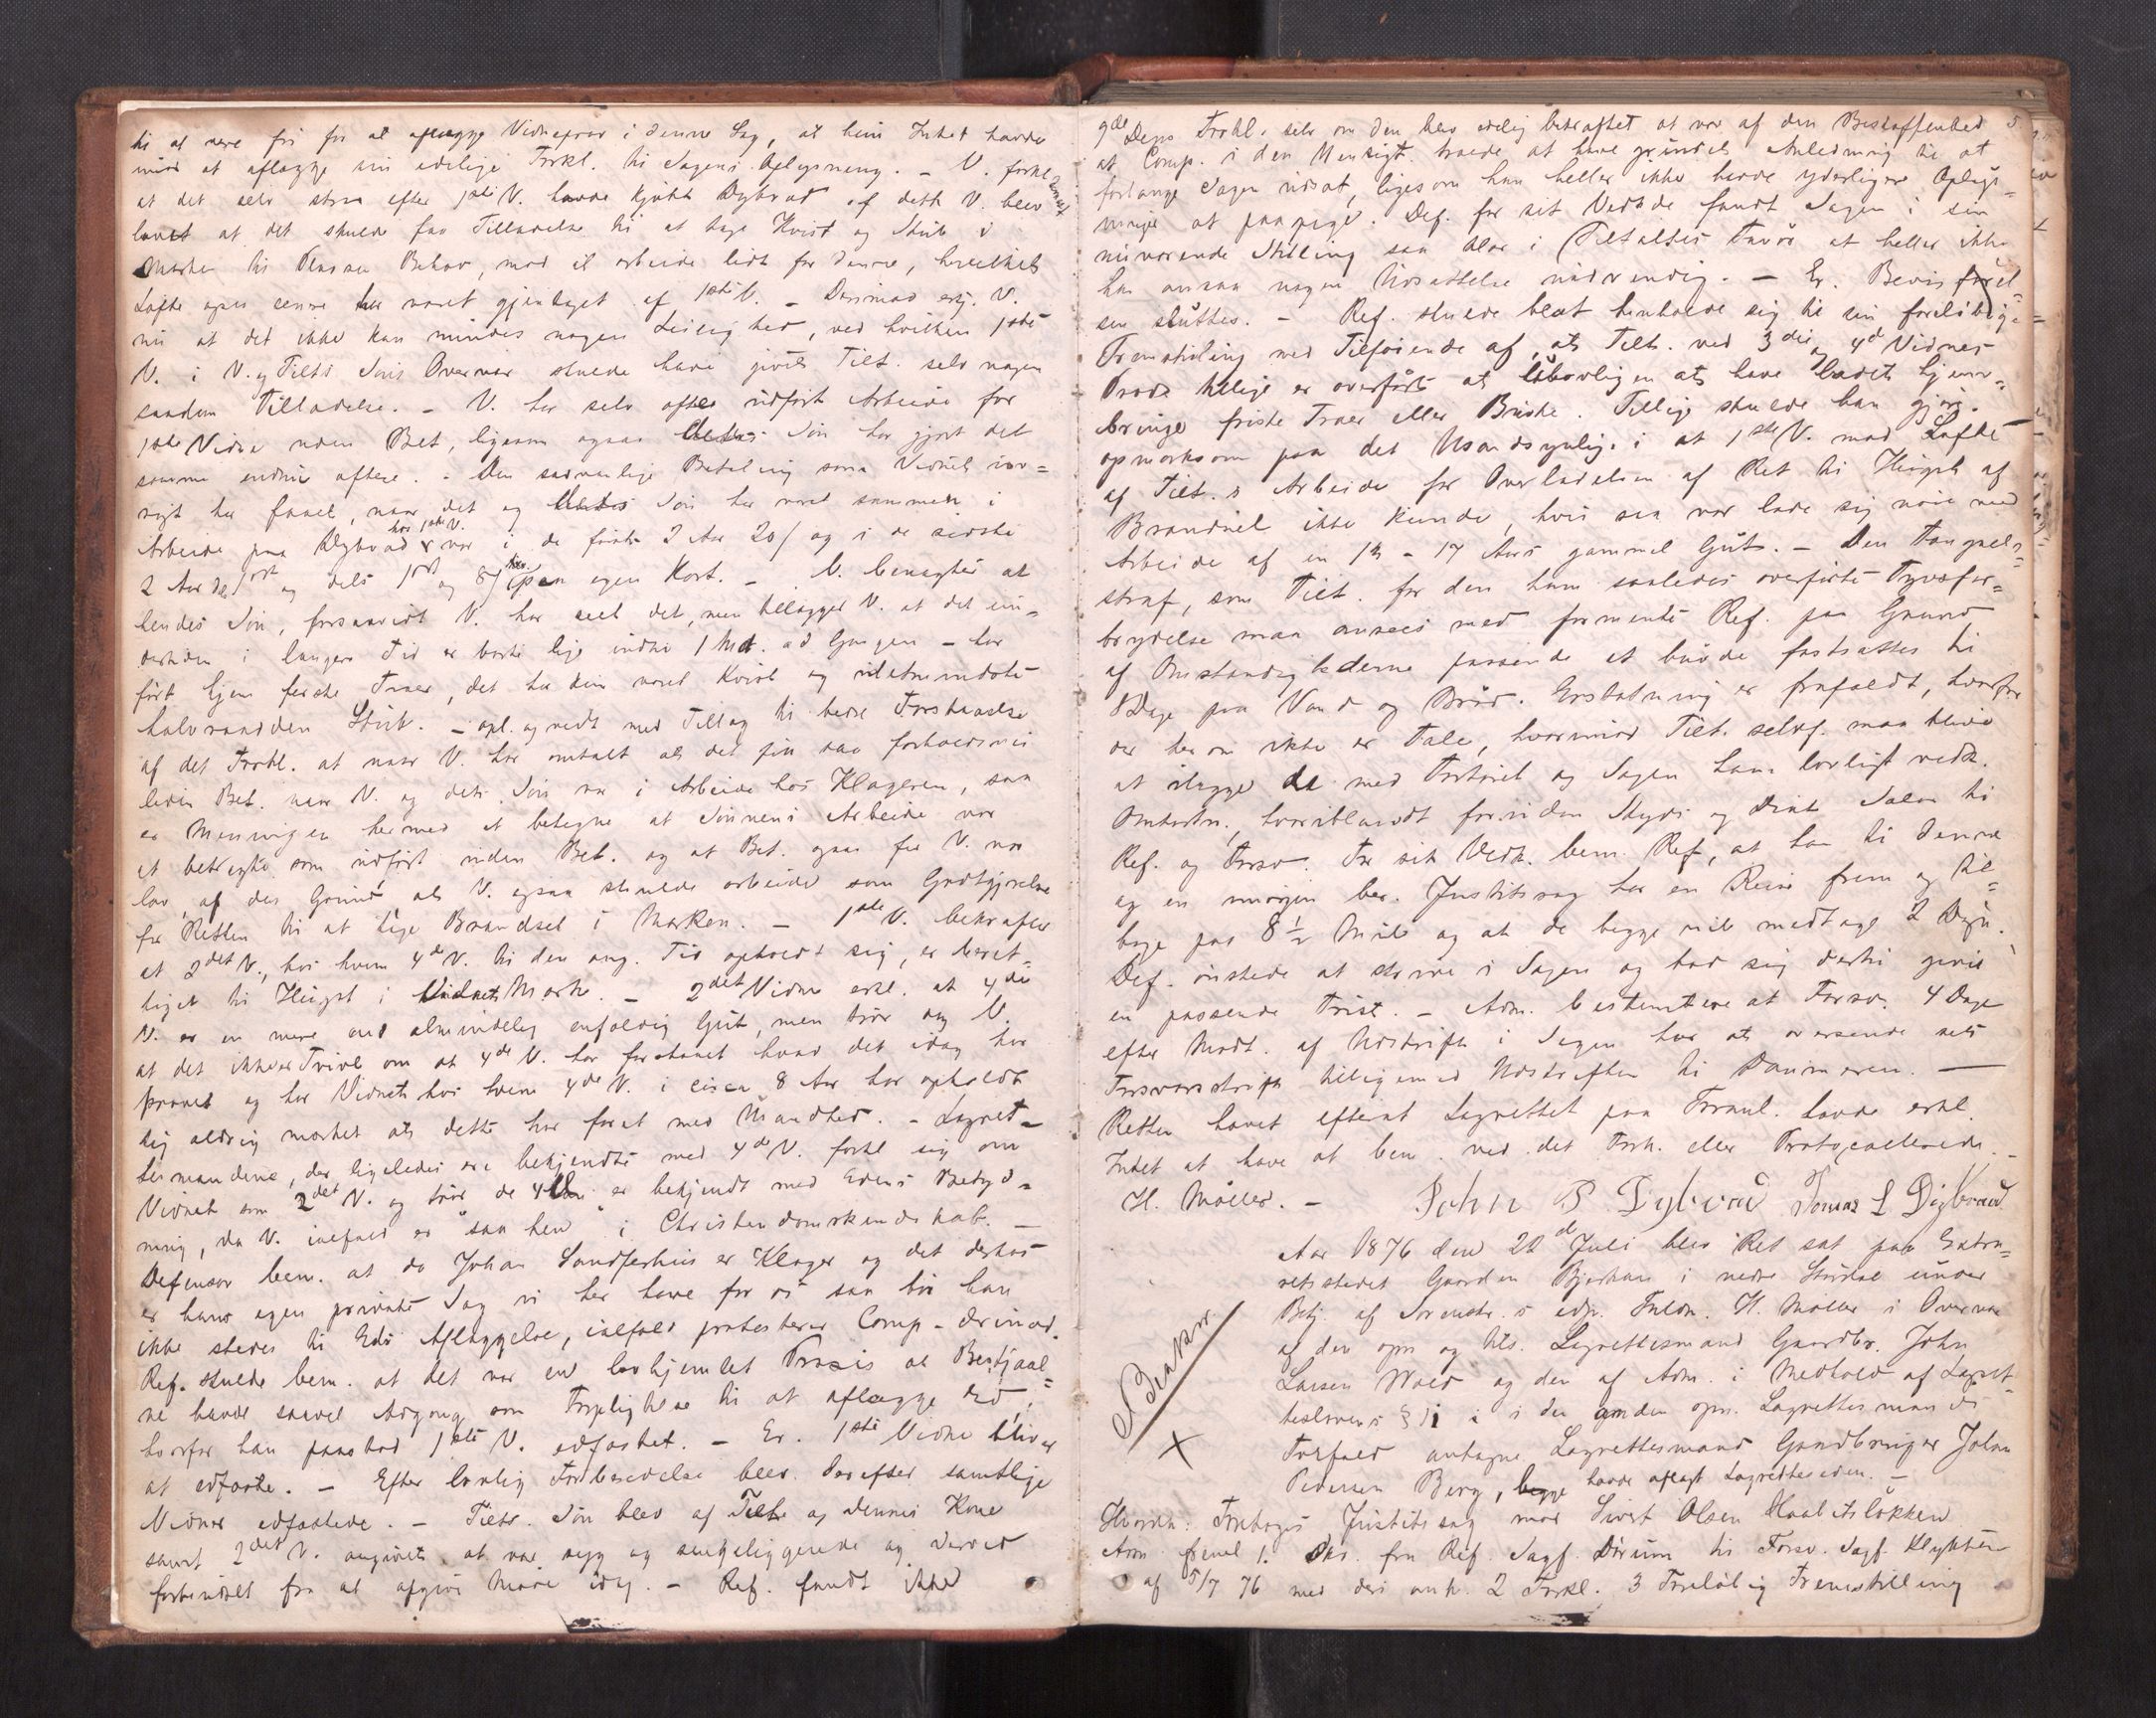 til at være fri for at aflægge Vidneprov i denne Sag, at hun Intet havde
imod at aflægge sin edelige Forkl. til Sagens Oplysning. - V. forkl.
at det selv strax efter 1ste V. havde kjøbt Dybvad af dette V. blev
lovet at det skulde faa Tilladelse til at tage Kvist og Stub i
Marken til Pladsens Behov, mod at arbeide lidt for denne, hvilket
Løfte ogsaa senere har været gjentaget af 1ste V. - Derimod erkj. V.
nu at det ikke kan mindes nogen Leilighed, ved hvilken 1ste
V. i V. og Tilts Søns Overvær skulde have givet Tilt. selv nogen
saadan Tilladelse. - V. har selv oftere udført Arbeide for
1ste Vidne uden Bet, ligesom ogsaa dets Søn har gjort det
samme endnu oftere. - Den sædvanlige Betaling som Vidnet iøv=
rigt har faaet, naar det og dets Søn har været sammen i
Arbeide paa Dybvad hos 1ste V. var i de første 2 Aar 20/ og i de sidste
2 Aar dels 1 ort og dels 1 ort og 8/ paa egen Kost. - V. benægter at
hendes Søn, forsaavidt V. har seet det, men tillægger V. at det im=
idertid i længere Tid er borte lige indtil 1 Md. ad Gangen - har
ført hjem ferske Træer, det har kun været Kvist og idetmindste
halvraadden Stub. - opl. og vedt. med Tillæg til bedre Forstaaelse
af det Forkl. at naar V. har omtalt at det fik saa forholdsvis
liden Bet. naar V. og dets Søn var i Arbeide hos Klageren, saa
er Meningen hermed at betegne at Sønnens Arbeide var
at betragte som udført uden Bet. og at Bet. ogsaa for V. var
lav, af den Grund, at V. ogsaa skulde arbeide som Godtgjørelse
for Retten til at tage Brændsel i Marken. - 1ste V. bekræfter
at 2det V., hos hvem 4de V. til den ang. Tid opholdt sig, er beret=
tiget til Hugst i Vidnets Mark. - 2det Vidne erkl. at 4de
V. er en mere end almindelig enfoldig Gut, men tror dog V.
at det ikke er Tvivl om at 4de V. har forstaaet hvad det idag har
provet og har Vidnet hos hvem 4de V. i circa 8 Aar har opholdt
sig aldrig mærket at dette har faret med Usandhed. - Lagret=
tesmændene, der ligeledes ere bekjendte med 4de V. forkl. sig om
Vidnet som 2det V. og tror de 4de V. er bekjendt med Edens Betyd=
ning, da V. ialfald er "saa hen" i Christendomskundskab. -
Defensor bem. at da Johan Sandferhus er Klager og det desuden
er hans egen private Sag vi her have for os saa bør han
ikke stedes til Eds Aflæggelse, ialfald protesterer Comp. derimod.
Ref. skulde bem. at det var en lovhjemlet Praxis at Bestjaal=
ne havde saavel Adgang som Forpligtelse til at aflægge Ed,
hvorfor han paastod 1ste V. edfæstet. - Er. 1ste Vidne bliver
at edfæste. - Efter lovlig Forberedelse blev derefter samtlige
Vidner edfæstede. - Tilts. Søn blev af Tilt. og dennes Kone
samt 2det V. angivet at være syg og sengeliggende og derved
forhindret fra at afgive Møde idag. - Ref. fandt ikke
9de Deps Forkl. selv om den blev edelig bekræftet at være af den Beskaffenhed 5.
at Comp. i den Henseigt troede at have grundet Anledning til at
forlange Sagen udsat, ligesom han heller ikke havde yderligere Oplys=
ninger at paapege. Def. for sit Vedk.de fandt Sagen i sin
nuværende Stilling saa klar i Tiltaltes Favør at heller ikke
han ansaa nogen Udsættelse nødvendig. - Er. Bevisførel=
sen sluttes. - Ref. skulde blot henholde sig til sin foreløbige
Fremstilling med Tilføiende af, at Tilt. ved 3die og 4de Vidnes
Prov tillige er overført at ulovligen at have ladet hjem=
bringe friske Træer eller Buske. Tillige skulde han gjøre
opmærksom paa det Usandsynlige i at 1ste V. mod Løfte
af Tilt.s Arbeide for Overladelsen af Ret til Hugst af
Brændsel ikke kunde, hvis saa var lade sig nøie med
Arbeide af en 16 - 17 Aars gammel Gut. - Den Fængsels=
straf, som Tilt. for den ham saaledes overførte Tyvsfor=
brydelse maa ansees med formente Ref. paa Grund
af Omstændighederne passende at burde fastsættes til
8 Dage paa Vand og Brød. Erstatning er frafaldt, hvorfor
der herom ikke er Tale, hvorimod Tilt. selvf. maa blive
at ilægge de med Forhøret og Sagen ham lovligt vedk.
Omkostn., hvoriblandt foruden Skyds og Diæt Salær til
Ref. og Forsv. For sit Vedk. bem. Ref, at han til denne
og en imorgen ber. Justitssag har en Reise frem og til=
bage paa 8½ Mil og at de begge vil medtage 2 Døgn.
Def. ønskede at skrive i Sagen og bad sig dertil given
en passende Frist. - Adm. bestemte at Forsv. 4 Dage
efter Modt. af Udskrift i Sagen har at oversende sit
Forsvarsskrift tilligemed Udskriften til Dommeren. -
Retten hævet efterat Lagrettet paa Foranl. havde erkl.
Intet at have at bem. ved det Forh. eller Protocollerede. -
H. Møller. - John P Dybvad Tomas L Dybvad
Aar 1876 den 22de Juli blev Ret sat paa Extra=
retsstedet Gaarden Bjørkan i nedre Størdal under
Betj. af Sorenskr.s edsv. Fuldm. H. Møller i Overvær
af den opn og tils. Lagrettesmand Gaardbr. John
Larsen Wold og den af Adm. i Medhold af Lagret=
teslovens § i den anden opn. Lagrettesmands
Forfald antagne Lagrettesmand Gaardbruger Johan
Pedersen Berg, begge havde aflagt Lagretteseden. -
Hvorda: Foretoges Justitssag mod Sivert Olsen Haabetsløkken
Adm. freml. 1. Skr. fra Ref. Sagf. Dirium til Forsv. Sagf. Klykken
af 5/7 76 med dets ank. 2 Forkl. 3 Foreløbig Fremstilling